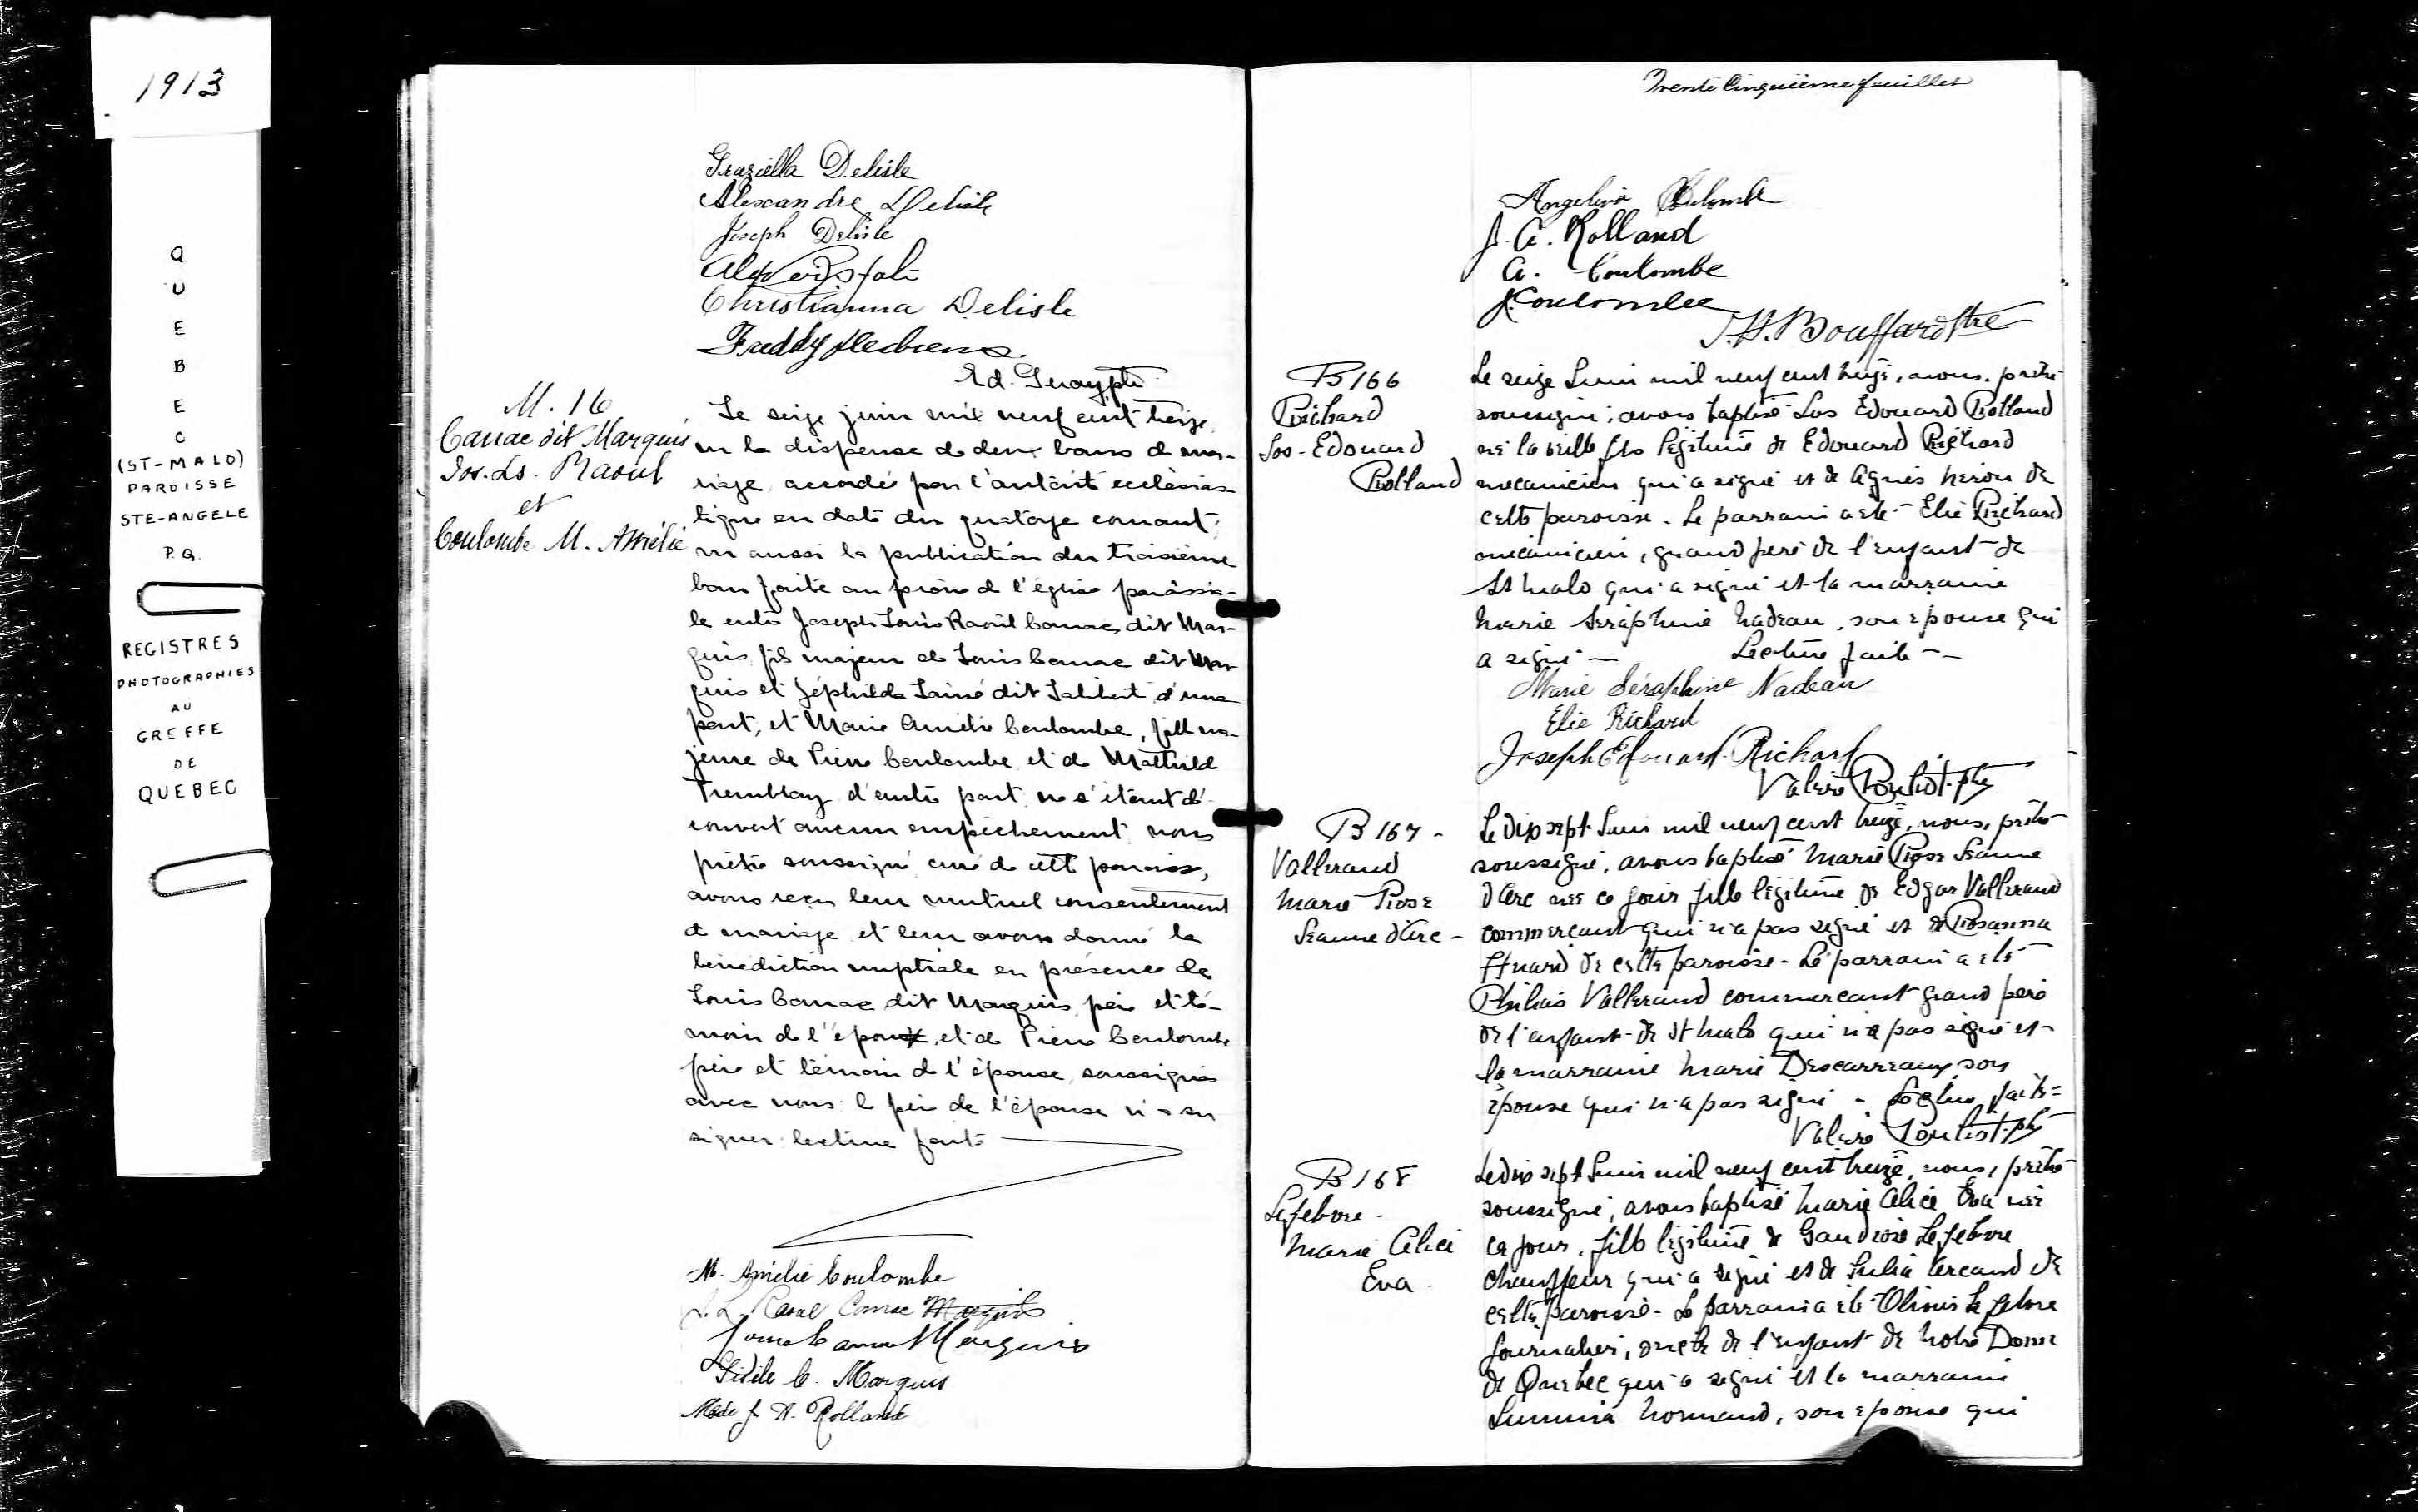 1913
QUEBEC
(ST-MALO)
PAROISSE
STE-ANGELE
P.Q.
REGISTRES
PHOTOGRAPHIES
AU
GREFFE
DE
QUEBEC
Graziella Delisle
Alexandre Delisle
Joseph Delisle
Christianna Delisle
Freddy
Ed.
M. 16
Canac dit Marquis
Jos. Ls. Raoul
et
Coulombe M. Amélie
Le seize juin mil neuf cent treize,
vu la dispense de deux bans de ma-
riage accordée par l'autorité ecclésias-
tique en date du quatorze courant;
vu aussi la publication du troisième
ban faite au prône de l'église paroissia-
le entre Joseph Louis Raoul Canac dit Mar-
quis, fils majeur de Louis Canac dit Mar-
quis et Zéphilda Lainé dit Laliberté d'une
part, et Marie Amélie Coulombe, fille ma-
jeure de Pierre Coulombe et de Mathilde
Tremblay d'autre part, ne s'étant dé-
couvert aucun empêchement, nous
prêtre soussigné curé de cette paroisse,
avons reçu leur mutuel consentement
de mariage et leur avons donné la
bénédiction nuptiale en présence de
Louis Canac dit Marquis père et té-
moin de l'époux, et de Pierre Coulombe
père et témoin de l'épouse, soussignés
avec nous: le père de l'épouse n'a su
signer. lecture faite
M. Amélie Coulombe
J. L. Raoul Canac Marquis
Louis Canac Marquis
C. Marquis
J. A. Rolland
Trente Cinquième feuillet
Angelina Coulombe
J. A. Rolland
A. Coulombe
J. Coulombe
J. H. Bouffard Ptre
B 166
Richard
Jos-Edouard
Rolland
Le seize Juin mil neuf cent treize, nous, prêtre
soussigné, avons baptisé Jos Edouard Rolland
né la veille fils légitime de Edouard Richard
mécanicien qui a signé et de Agnès Néron de
cette paroisse. Le parrain a été Elie Richard
mécanicien, grand père de l'enfant de
St Malo qui a signé et la marraine
Marie Séraphine Nadeau, son épouse qui
a signé — Lecture faite —
Marie Séraphine Nadeau
Elie Richard
Joseph Edouard Richard
Valère Pouliot ptre
B 167 -
Vallerand
Marie Rose
Jeanne d'Arc -
Le dix sept Juin mil neuf cent treize, nous, prêtre
soussigné, avons baptisé Marie Rose Jeanne
d'Arc née ce jour fille légitime de Edgar Vallerand
commerçant qui n'a pas signé et de Rosanna
Huard de cette paroisse - Le parrain a été
Philéas Vallerand commerçant grand père
de l'enfant de St Malo qui n'a pas signé et
la marraine Marie Descarreaux son
épouse qui n'a pas signé - Lecture faite =
Valère Pouliot ptre
B 168
Lefebvre -
Marie Alice
Eva -
Le dix sept Juin mil neuf cent treize, nous, prêtre
soussigné, avons baptisé Marie Alice Eva née
ce jour, fille légitime de Gaudiose Lefebvre
chauffeur qui a signé et de Julia Arcand de
cette paroisse - Le parrain a été Lefebvre
Journalier, oncle de l'enfant de Notre Dame
de Québec qui a signé et la marraine
Normand, son épouse qui